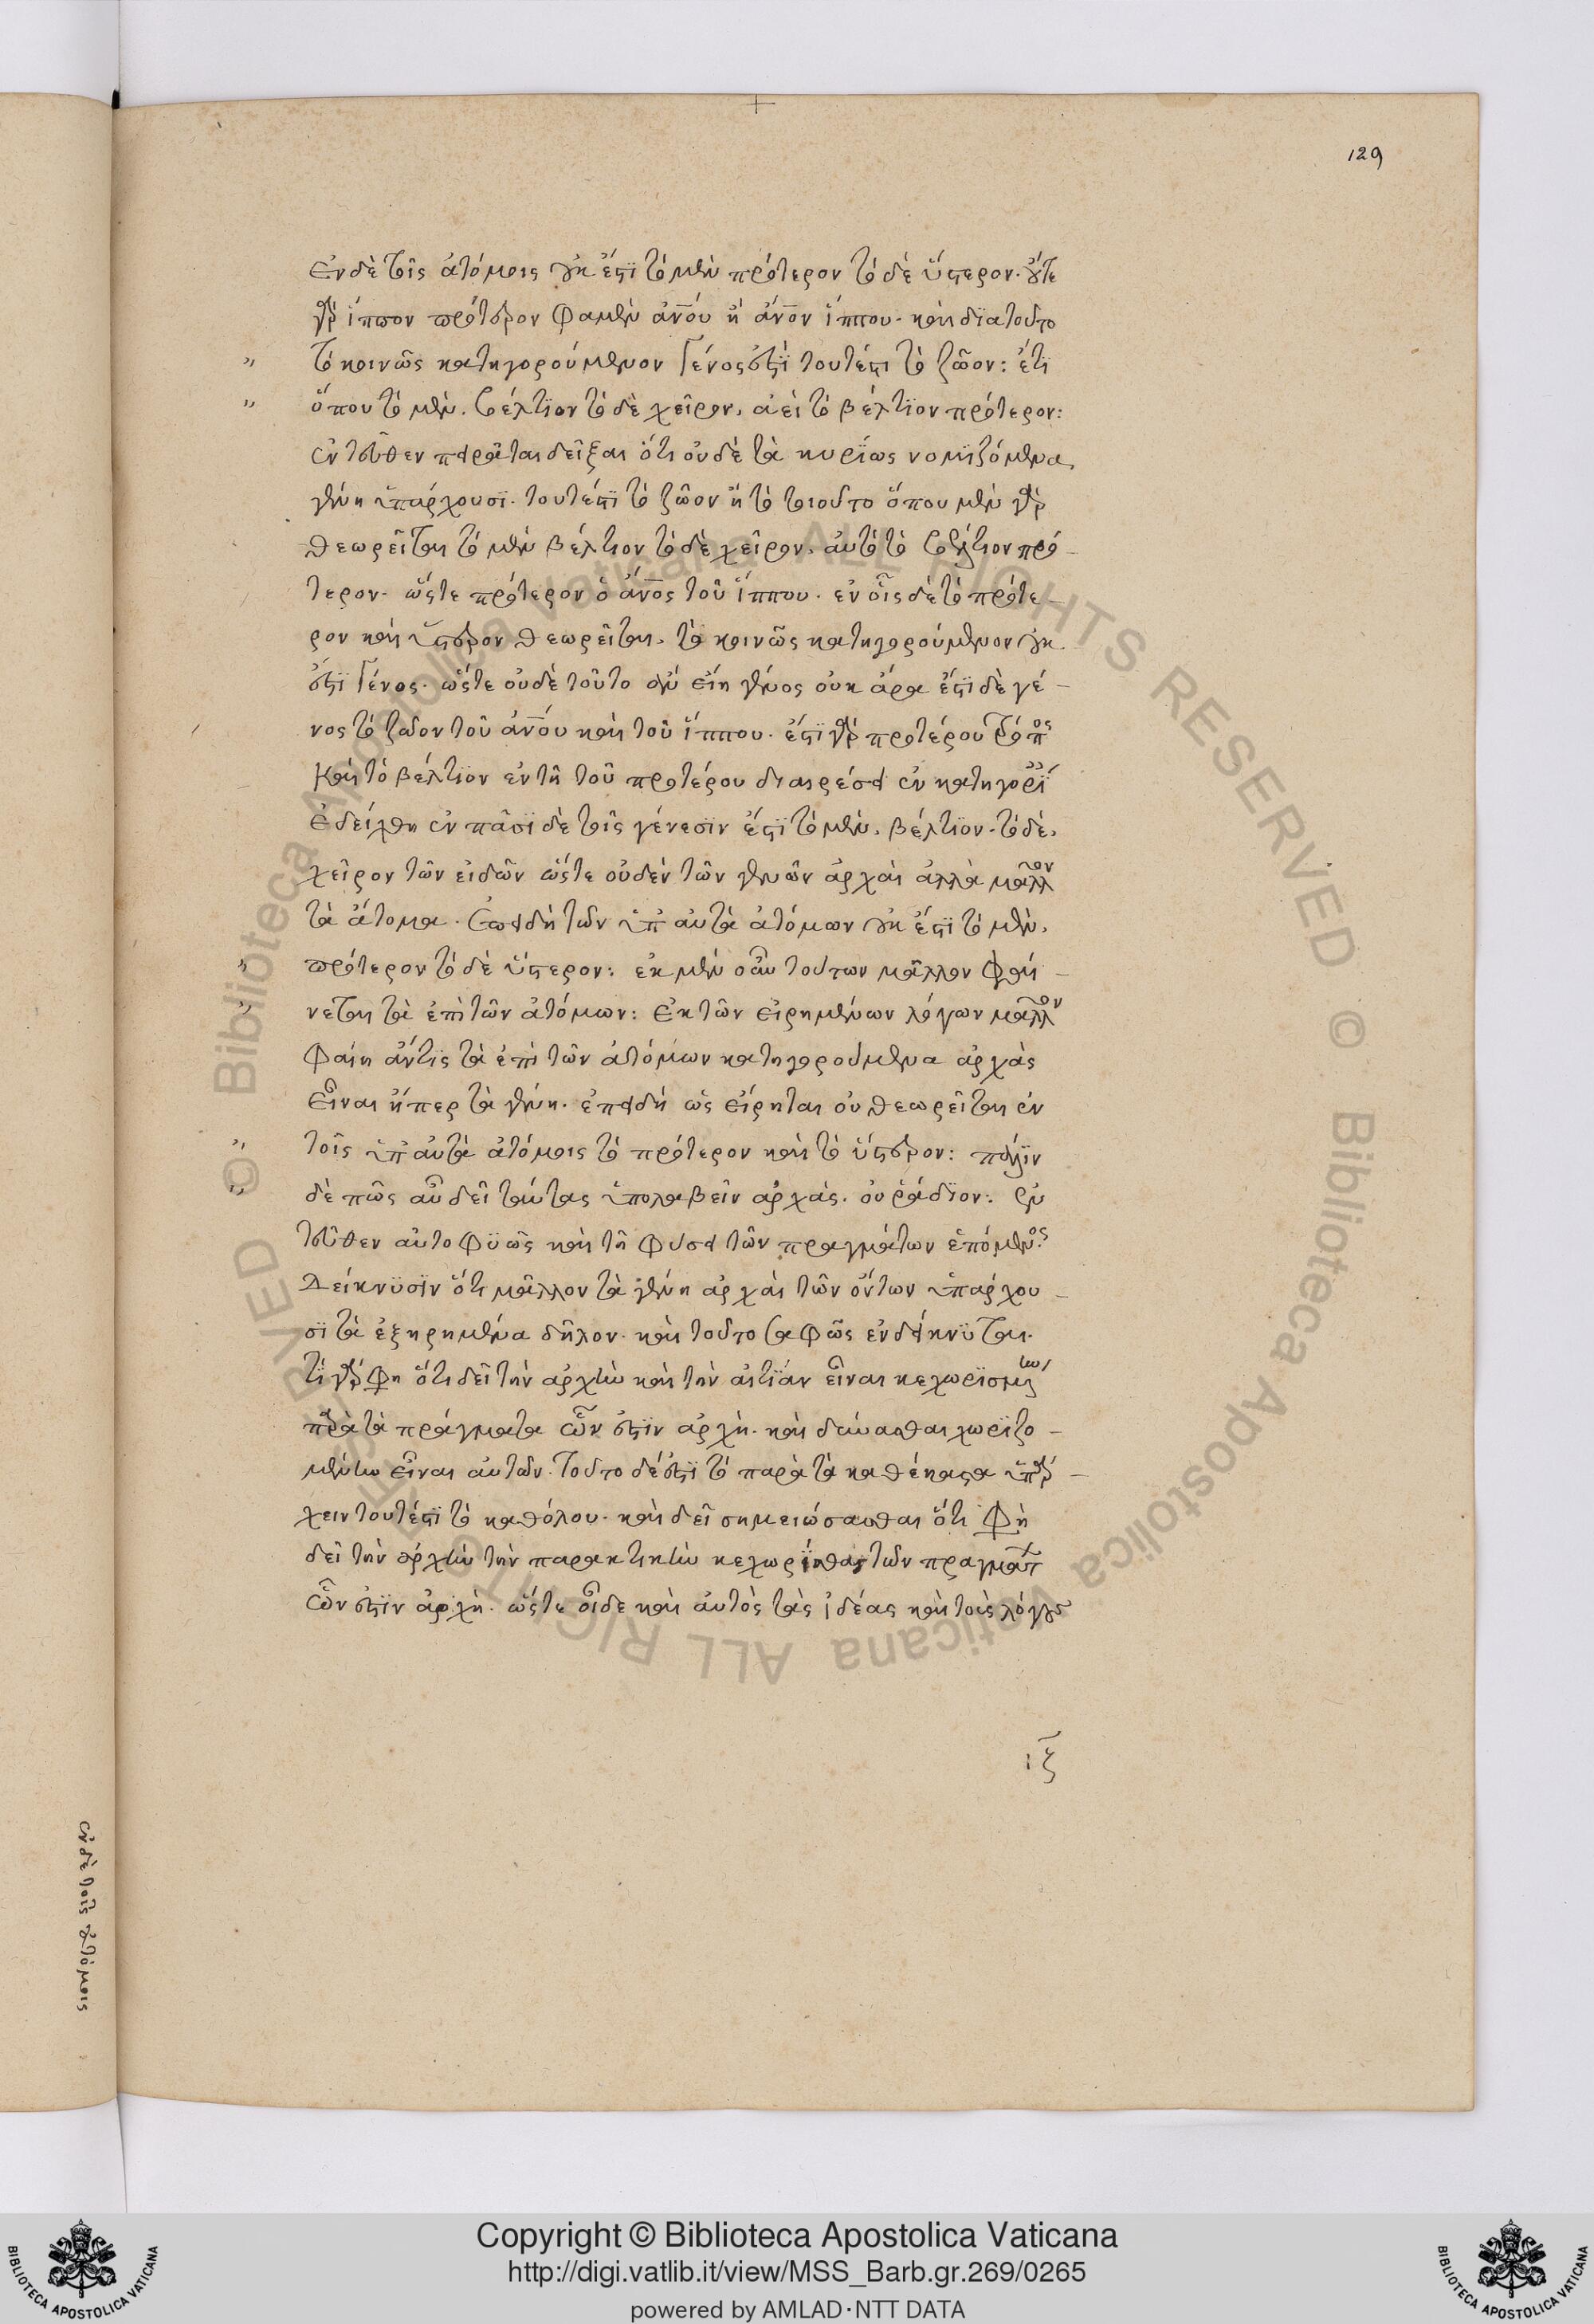 129
ἐν δὲ τοῖς ἀτόμοις οὐκ ἔστι τὸ μὲν πρότερον τὸ δὲ ὕστερον. οὔτε
γὰρ ἵππον πρότερον φαμὲν ἀν̅ου ἢ ἄν̅ον ἵππου. καὶ διατοῦτο
" τὸ κοινῶς κατηγορούμενον γένος ἐστὶ τουτέστι τὸ ζῶον: ἔτι
" ὅπου τὸ μὲν. βέλτιον τὸ δὲ χεῖρον, ἀεὶ τὸ βέλτιον πρότερον:
ἐντεῦθεν πειρᾶται δεῖξαι ὅτι οὐδὲ τὰ κυρίως νομιζόμενα
γένη ὑπάρχουσι. τουτέστι τὸ ζῶον ἢ τὸ τοιοῦτο ὅπου μὲν γὰρ
θεωρεῖται τὸ μὲν βέλτιον τὸ δὲ χεῖρον, αὐτὸ τὸ βέλτιον πρό-
τερον. ὥστε πρότερον ὁ ἄν̅ος τοῦ ἵππου. ἐν οἷς δὲ τὸ πρότε-
ρον καὶ ὕστερον θεωρεῖται, τὸ κοινῶς κατηγορούμενον οὐκ
ἐστὶ γένος. ὥστε οὐδὲ τοῦτο ἂν εἴη γένος οὐκ ἄρα ἐστὶ δὲ γέ-
νος τὸ ζῶον τοῦ ἀν̅ου καὶ τοῦ ἵππου. ἔστι γὰρ προτέρου
καὶ τὸ βέλτιον ἐν τῇ τοῦ προτέρου διαιρέσει ἐν κατηγορί
ἐδείχθη ἐν πᾶσι δὲ τοῖς γένεσιν ἔστι τὸ μὲν. βέλτιον. τὸ δὲ.
χεῖρον τῶν εἰδῶν ὥστε οὐδὲν τῶν γενῶν ἀρχαὶ ἀλλὰ μᾶλλον
τὰ ἄτομα. ἐπειδὴ τῶν ὑπ' αὐτὰ ἀτόμων οὐκ ἔστι τὸ μὲν.
" πρότερον τὸ δὲ ὕστερον: ἐκ μὲν οὖν τούτων μᾶλλον φαί-
" νεται τὰ ἐπὶ τῶν ἀτόμων: ἐκ τῶν εἰρημένων λόγων μᾶλλον
φαίη ἄντις τὰ ἐπὶ τῶν ἀτόμων κατηγορούμενα ἀρχὰς
εἶναι ἤπερ τὰ γένη. ἐπειδὴ ὡς εἴρηται οὐ θεωρεῖται ἐν
" τοῖς ὑπ' αὐτὰ ἀτόμοις τὸ πρότερον καὶ τὸ ὕστερον: πάλιν
" δὲ πῶς αὖ δεῖ ταύτας ὑπολαβεῖν ἀρχὰς. οὐ ῥάδιον: ἐν
τεῦθεν αὐτοφυῶς καὶ τῇ φύσει τῶν πραγμάτων ἑπόμενος
δείκνυσιν ὅτι μᾶλλον τὰ γένη ἀρχαὶ τῶν ὄντων ὑπάρχου-
σι τὰ ἐξηρημένα δῆλον. καὶ τοῦτο σαφῶς ἐνδείκνυται.
τί γάρ φη ὅτι δεῖ τὴν ἀρχὴν καὶ τὴν αἰτίαν εἶναι κεχωρισμένην
παρὰ τὰ πράγματα ὧν ἐστὶν ἀρχή. καὶ δύνασθαι χωριζο-
μένην εἶναι αὐτῶν. τοῦτο δέ ἐστι τὸ παρὰ τὰ καθέκαστα ὑπάρ-
χειν τουτέστι τὸ καθόλου. καὶ δεῖ σημειώσασθαι ὅτι φὴ
δεῖ τὴν ἀρχὴν τὴν παρακτικὴν κεχωρίσθαι τῶν πραγμάτων
ὧν ἐστὶν ἀρχή. ὥστε οἶδε καὶ αὐτὸς τὰς ἰδέας καὶ τοὺς λόγους
ιζ
ἐν δὲ τοῖς ἀτόμοις
Copyright © Biblioteca Apostolica Vaticana
http://digi.vatlib.it/view/MSS_Barb.gr.269/0265
powered by AMLAD·NTT DATA